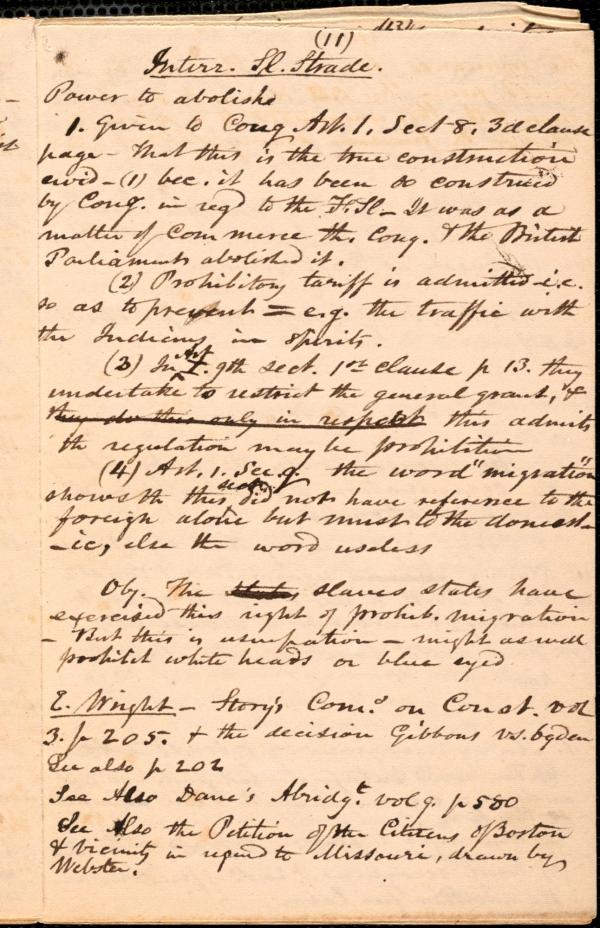 (11)
Interr. Sl. Trade.
Power to abolish
1. Given to Cong. Art. 1. Sect 8. 3d clause
page - That this is the true construction
evid - (1) bec. it has been so construed
by Cong. in regd to the F. Sl - It was as a
matter of commerce th. Cong. & the British
Parliament abolished it.
(2) Prohibitory tariff is admitted i.e.
so as to prevent = e.g. the traffic with
the Indians in spirits.
(3) In Art 1. 9th sect. 1st clause p 13. they
undertake to restrict the general grant, &
they do this only in respect this admits
th regulation may be prohibition
(4) Art. 1. Sec 9. the word "migration"
shows th this sect. did not have reference to the
foreign alone but must to the domest-
-ic, else the word useless
Obj. The states slaves states have
exercised this right of prohib. migration
- But this is usurpation - might as well
prohibit white heads or blue eyed
E. Wright - Story's Com.s on Const. vol
3. p 205. & the decision Gibbons vs. Ogden
See also p 202
See Also Dane's Abridgt. vol 9. p 580
See Also the Petition of the Citizens of Boston
& vicinity in regard to Missouri, drawn by
Webster.